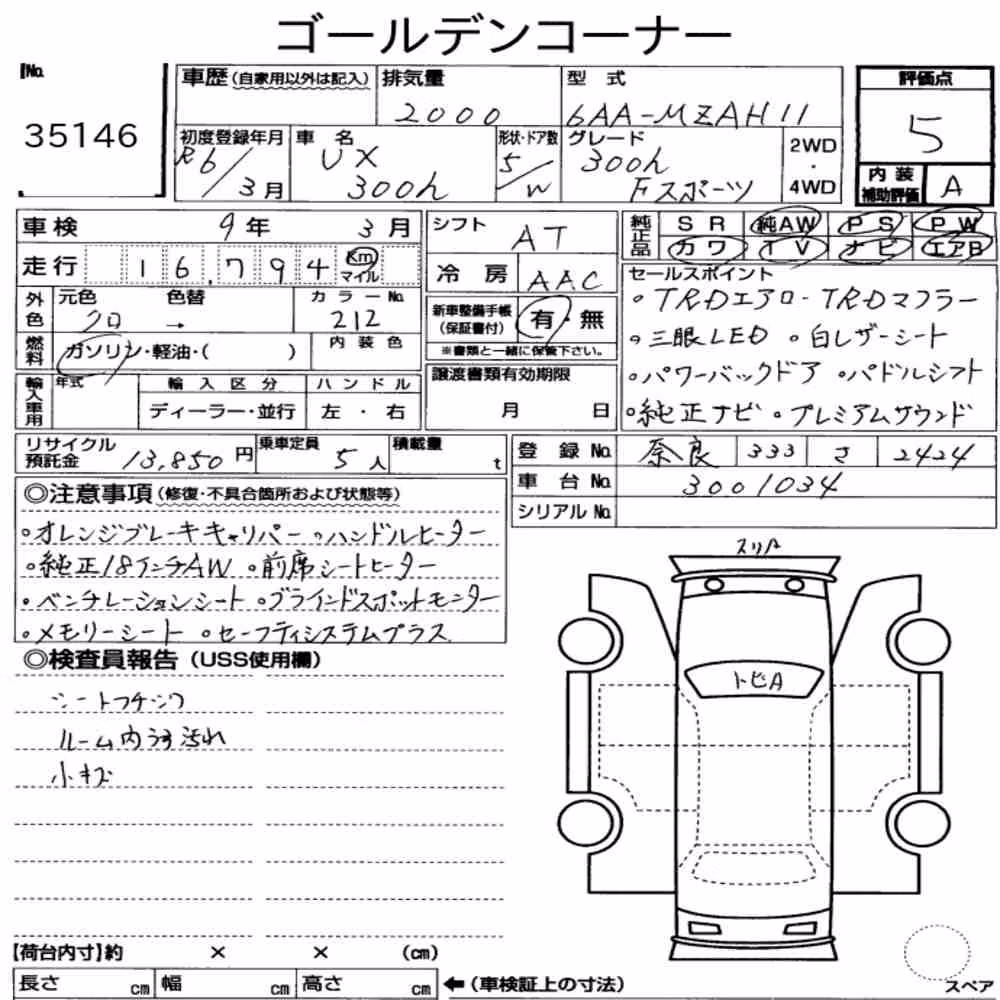 ゴールデンコーナー
No. 35146
車歴(自家用以外は記入)
排気量 2000
型式 6AA-MZAH11
評価点 5
初度登録年月 R6/3月
車名 UX 300h
形状・ドア数 5/W
グレード 300h Fスポーツ
2WD・4WD
内装補助評価 A
車検 9年 3月
シフト AT
純正品 SR 純AW PS PW
カワ TV ナビ エアB
走行 16,794 Km マイル
冷房 AAC
外色 元色 クロ 色替 → カラーNo. 212
新車整備手帳(保証書付) 有・無
※書類と一緒に保管下さい。
燃料 ガソリン・軽油・( ) 内装色
セールスポイント
・TRDエアロ・TRDマフラー
・三眼LED ・白レザーシート
・パワーバックドア ・パドルシフト
・純正ナビ ・プレミアムサウンド
輸入車用 年式 輸入区分 ハンドル
ディーラー・並行 左・右
譲渡書類有効期限 月 日
リサイクル預託金 13,850円 乗車定員 5人 積載量 t
登録No. 奈良 333 さ 2424
車台No. 3001034
シリアルNo.
◎注意事項(修復・不具合箇所および状態等)
・オレンジブレーキキャリパー ・ハンドルヒーター
・純正18インチAW ・前席シートヒーター
・ベンチレーションシート ・ブラインドスポットモニター
・メモリーシート ・セーフティシステムプラス
◎検査員報告(USS使用欄)
シートフチシワ
ルーム内うす汚れ
小キズ
スリキ
トビA
【荷台内寸】約 × × (cm)
長さ cm 幅 cm 高さ cm ←(車検証上の寸法)
スペア